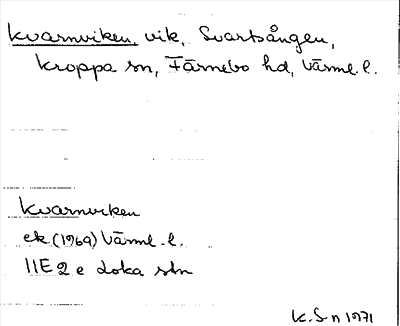 Kvarnviken, vik, Svartsången,
Kroppa sn, Färnebo hd, Värml. l.
Kvarnviken
ek (1969) Värml. l.
11E 2 e doka stn
K. S-n 1971